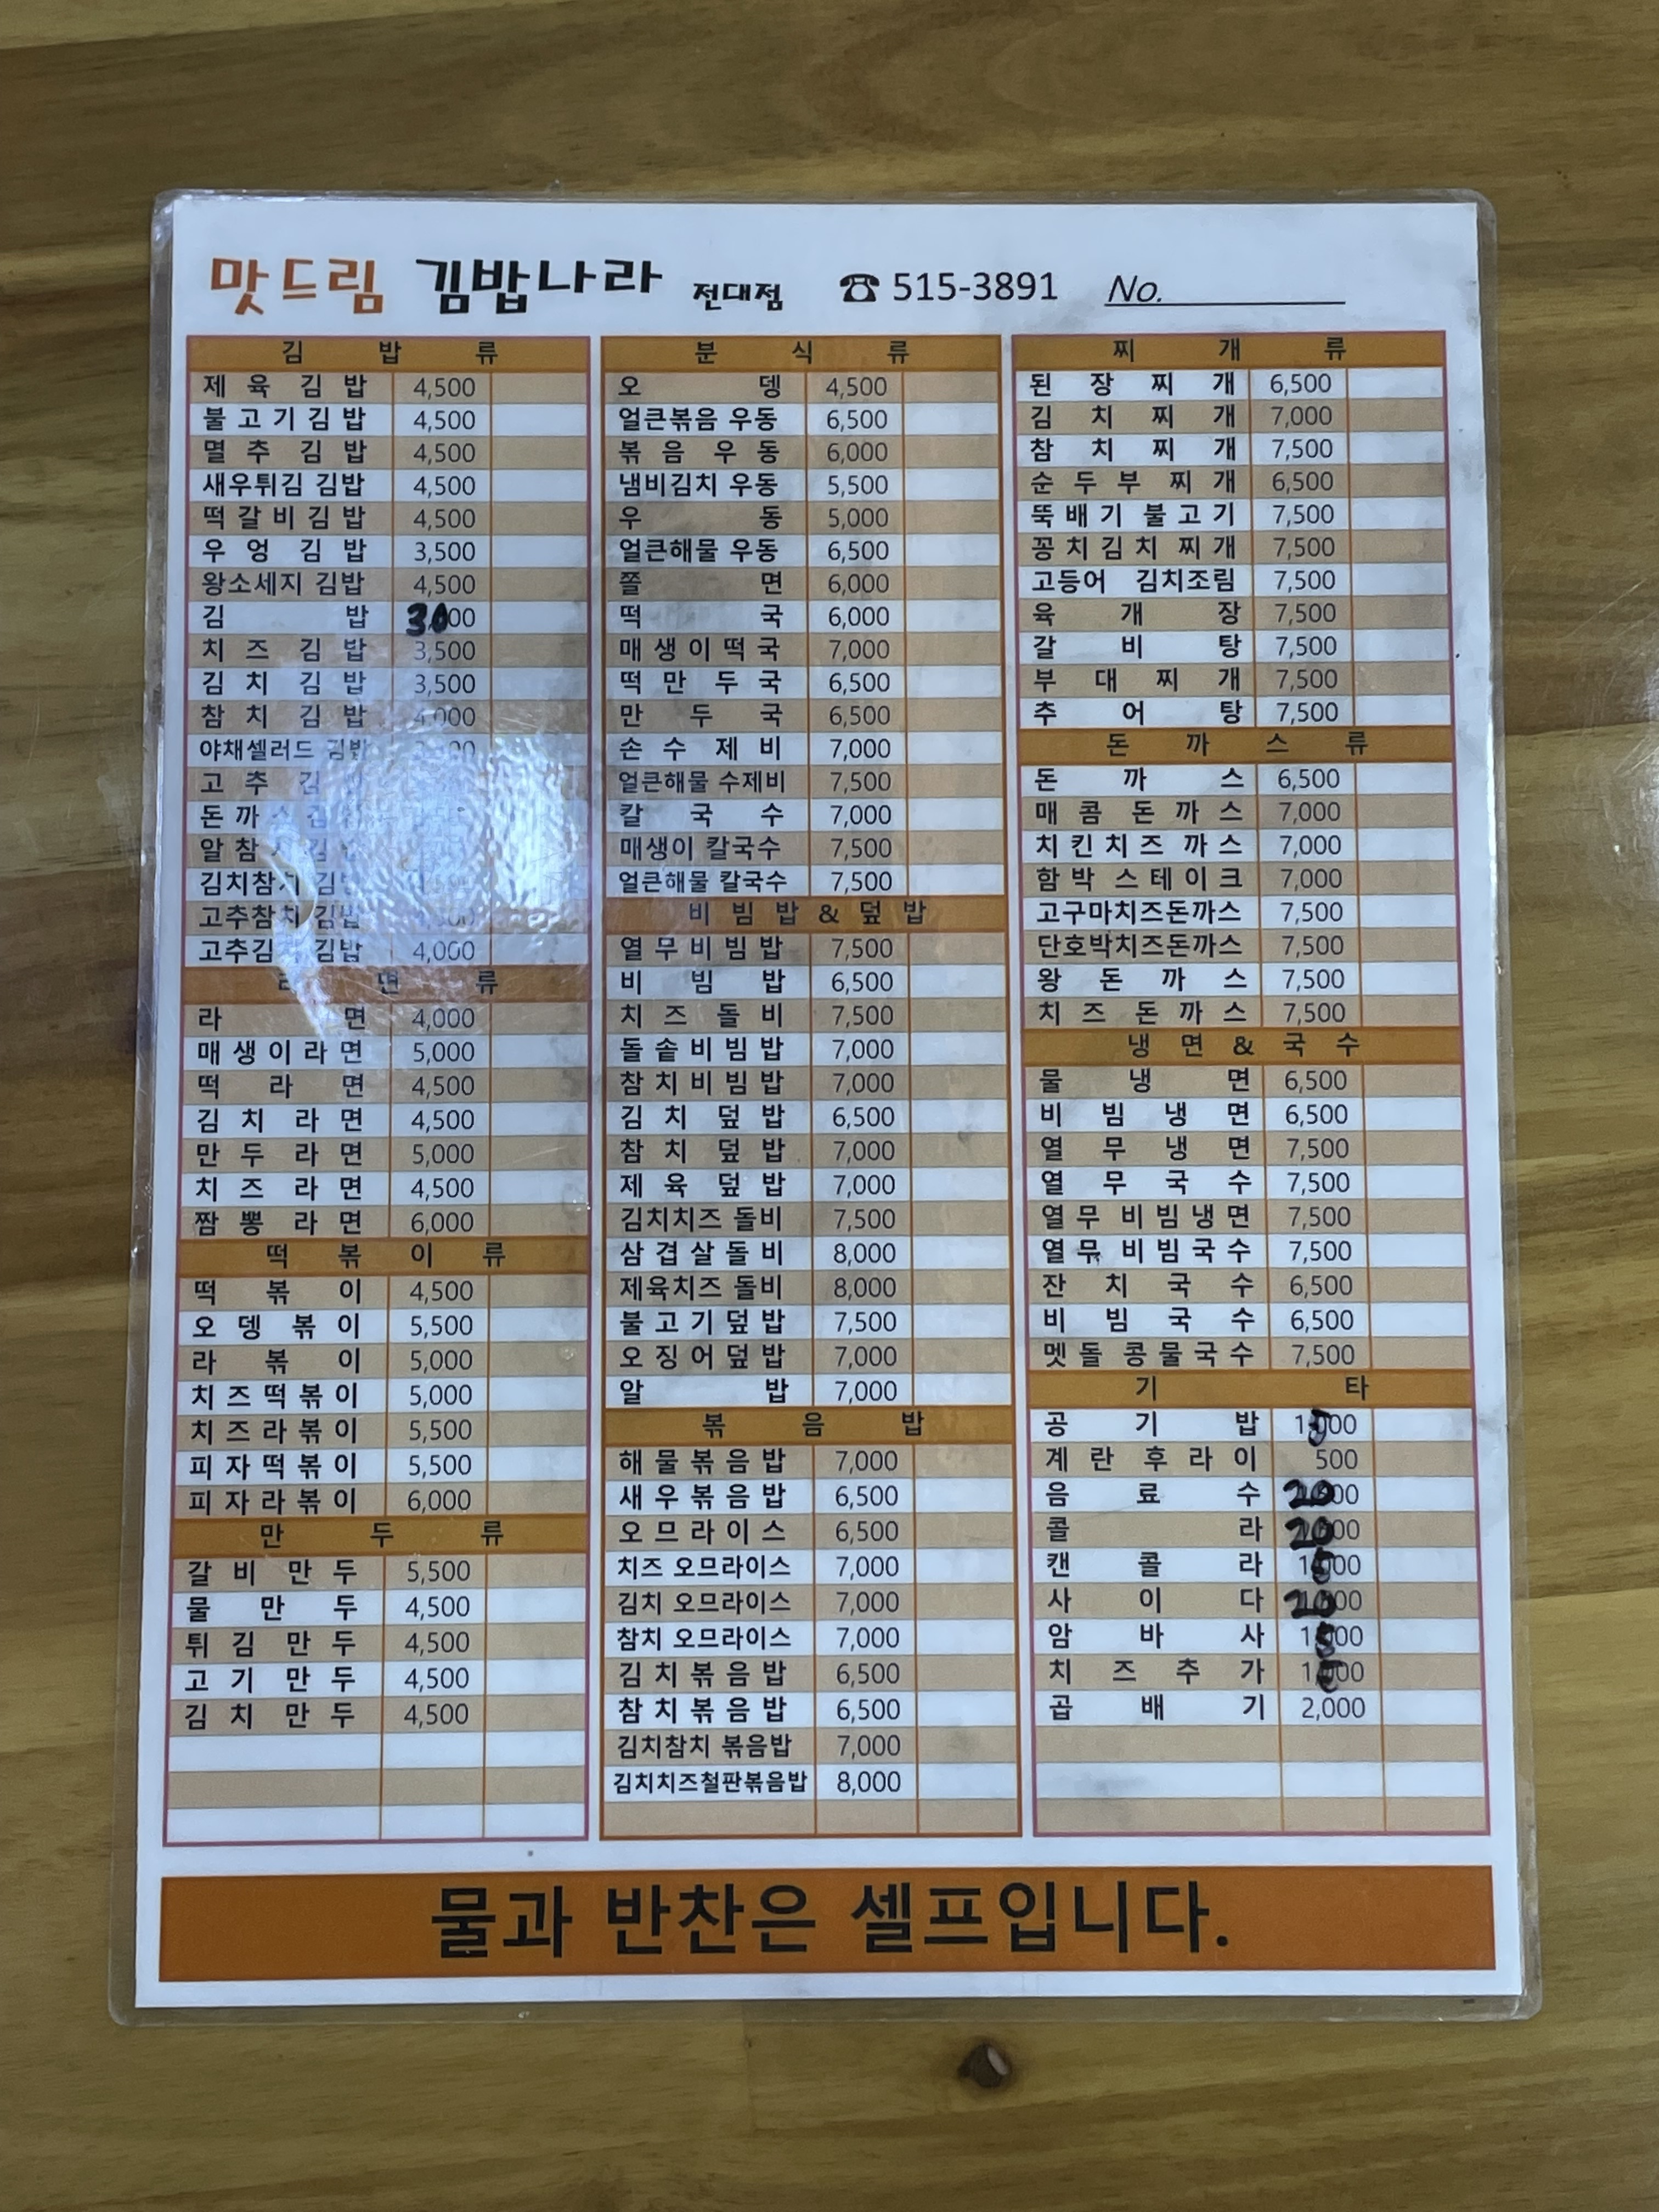 맛드림 김밥나라 전대점 ☎ 515-3891 No.
김밥류
제육김밥 4,500
불고기김밥 4,500
멸추김밥 4,500
새우튀김 김밥 4,500
떡갈비김밥 4,500
우엉김밥 3,500
왕소세지 김밥 4,500
김밥 3000
치즈김밥 3,500
김치김밥 3,500
참치김밥 4,000
야채셀러드 김밥
고추김
돈까스김
알참치김
김치참치 김밥
고추참치 김밥
고추김치김밥 4,000
라면류
라면 4,000
매생이라면 5,000
떡라면 4,500
김치라면 4,500
만두라면 5,000
치즈라면 4,500
짬뽕라면 6,000
떡볶이류
떡볶이 4,500
오뎅볶이 5,500
라볶이 5,000
치즈떡볶이 5,000
치즈라볶이 5,500
피자떡볶이 5,500
피자라볶이 6,000
만두류
갈비만두 5,500
물만두 4,500
튀김만두 4,500
고기만두 4,500
김치만두 4,500
분식류
오뎅 4,500
얼큰볶음 우동 6,500
볶음우동 6,000
냄비김치 우동 5,500
우동 5,000
얼큰해물 우동 6,500
쫄면 6,000
떡국 6,000
매생이떡국 7,000
떡만두국 6,500
만두국 6,500
손수제비 7,000
얼큰해물 수제비 7,500
칼국수 7,000
매생이 칼국수 7,500
얼큰해물 칼국수 7,500
비빔밥&덮밥
열무비빔밥 7,500
비빔밥 6,500
치즈돌비 7,500
돌솥비빔밥 7,000
참치비빔밥 7,000
김치덮밥 6,500
참치덮밥 7,000
제육덮밥 7,000
김치치즈 돌비 7,500
삼겹살돌비 8,000
제육치즈 돌비 8,000
불고기덮밥 7,500
오징어덮밥 7,000
알밥 7,000
볶음밥
해물볶음밥 7,000
새우볶음밥 6,500
오므라이스 6,500
치즈 오므라이스 7,000
김치 오므라이스 7,000
참치 오므라이스 7,000
김치볶음밥 6,500
참치볶음밥 6,500
김치참치 볶음밥 7,000
김치치즈철판볶음밥 8,000
찌개류
된장찌개 6,500
김치찌개 7,000
참치찌개 7,500
순두부찌개 6,500
뚝배기불고기 7,500
꽁치김치찌개 7,500
고등어 김치조림 7,500
육개장 7,500
갈비탕 7,500
부대찌개 7,500
추어탕 7,500
돈까스류
돈까스 6,500
매콤돈까스 7,000
치킨치즈까스 7,000
함박스테이크 7,000
고구마치즈돈까스 7,500
단호박치즈돈까스 7,500
왕돈까스 7,500
치즈돈까스 7,500
냉면&국수
물냉면 6,500
비빔냉면 6,500
열무냉면 7,500
열무국수 7,500
열무비빔냉면 7,500
열무비빔국수 7,500
잔치국수 6,500
비빔국수 6,500
멧돌콩물국수 7,500
기타
공기밥 1500
계란후라이 500
음료수 2000
콜라 2000
캔콜라 1500
사이다 2000
암바사 1500
치즈추가 1500
곱배기 2,000
물과 반찬은 셀프입니다.